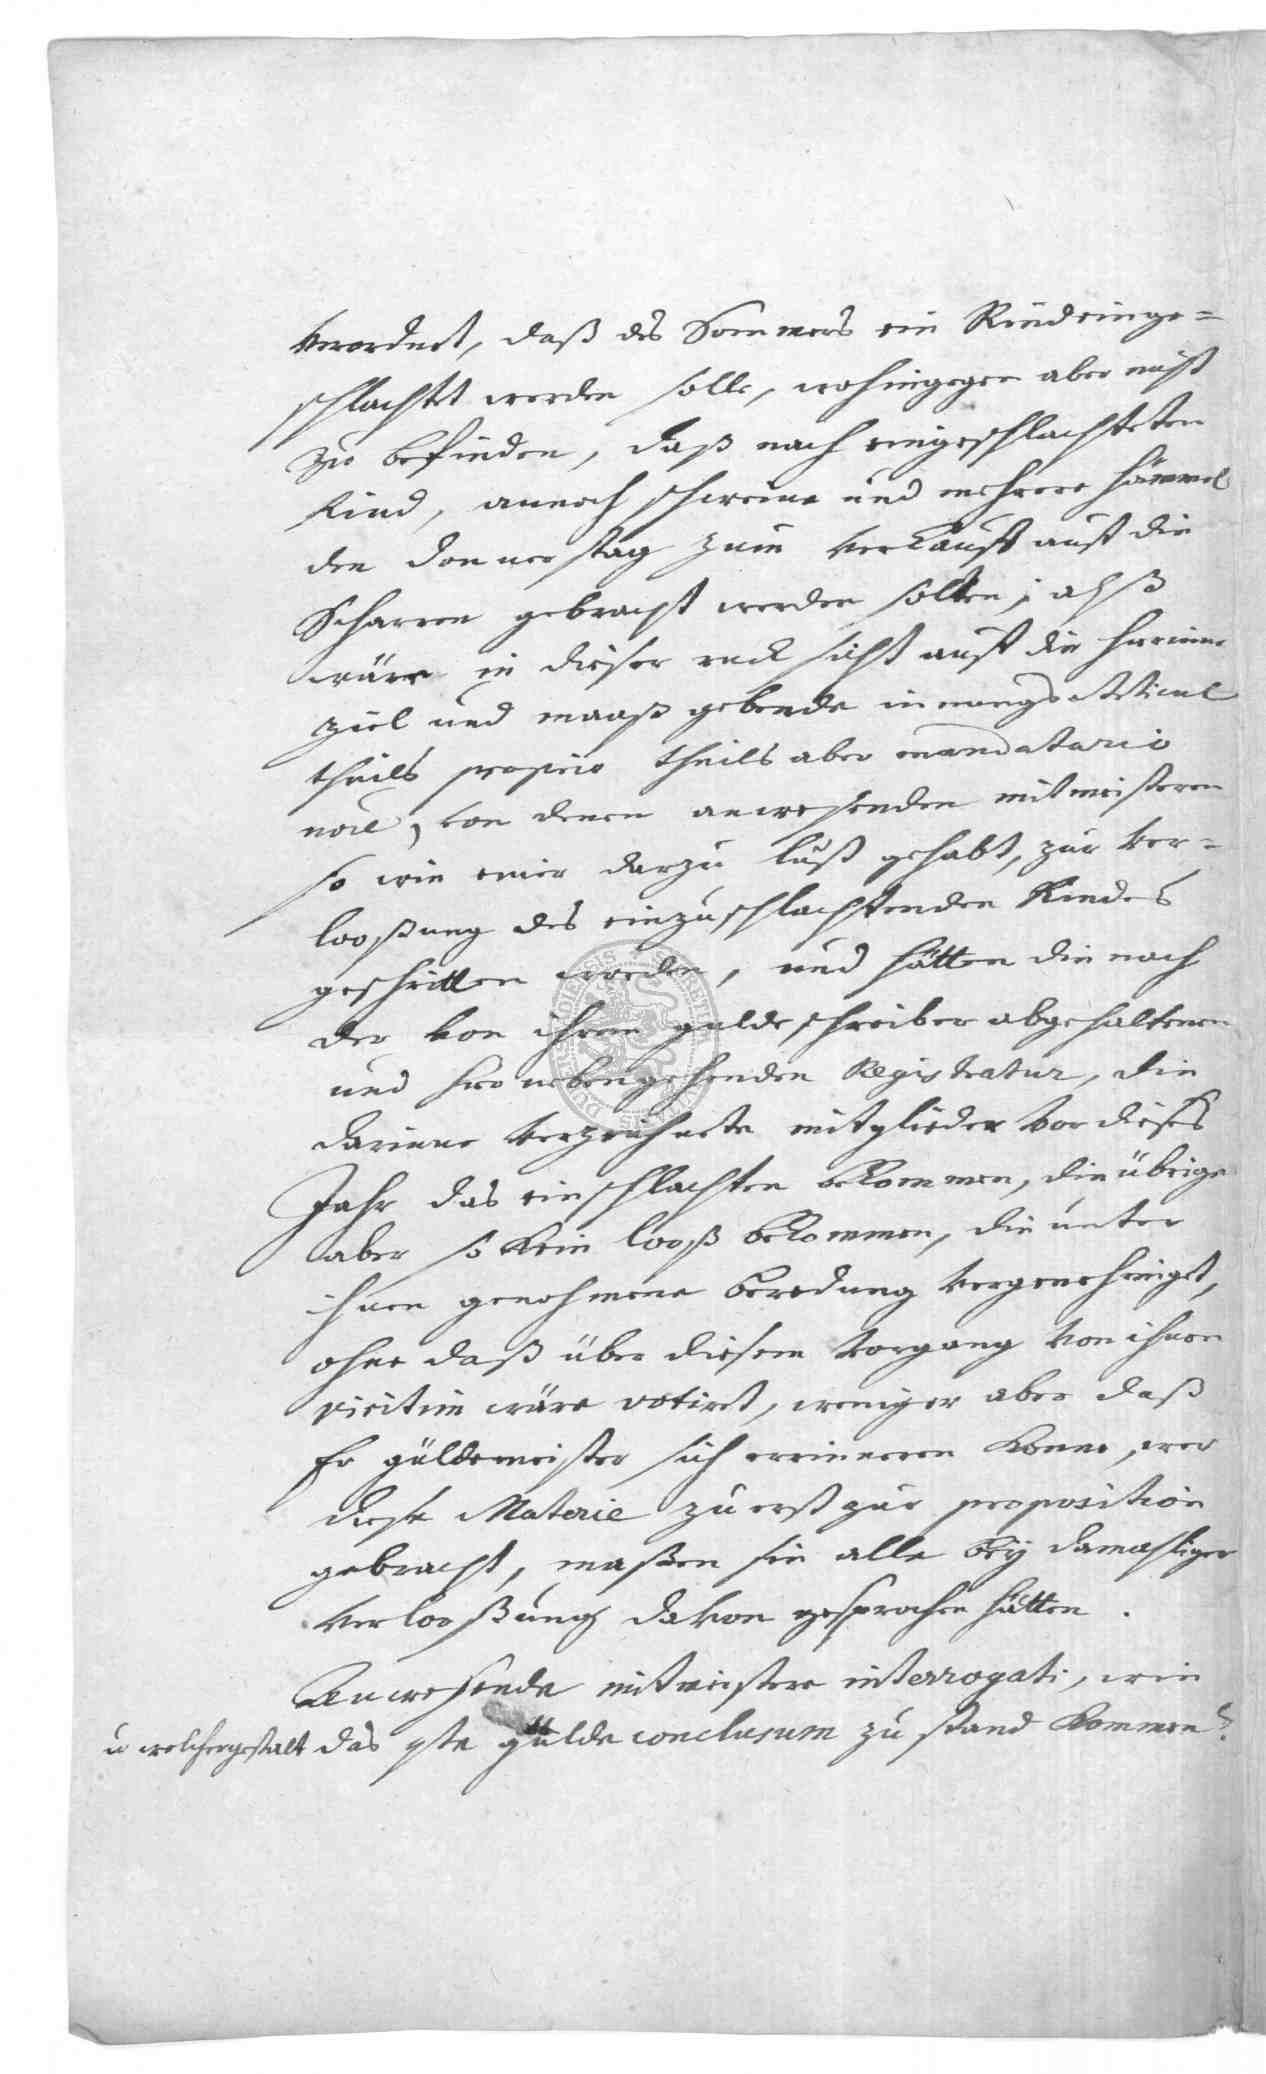 verordnet, daß des Sommers ein Rind einge=
schlachtet werden solle, wohingegen aber nicht
zu befinden, daß nach eingeschlachteten
Rind, annoch schweine und mehrere hämmel
den donnerstag zum verkauff auff die
Scharren gebracht werden solten; alß
wäre in dieser rücksicht auff die hierinne
ziel und maaß gebende innungs Articul
theils proprio theils aber mandatario
noie, von denen anwesenden mitmeisteren
so wie einer darzu lust gehabt, zur ver=
looßung des einzuschlachtenden Rindes
geschritten worden, und hätten die nach
der von ihrem gülde schreiber abgehaltenen
und hierneben gehenden Registratur, die
darinne verzeichnete mitglieder vor dieses
Jahr das einschlachten bekommen, die übrige
aber so kein looß bekommen, die unter
ihnen genohmene beredung vergenehmiget,
ohne daß über diesem vorgang von ihnen
viritim wäre votiret, weniger aber daß
Er güldemeister sich erinneren könne, wer
diese Materie zu erst zur proposition
gebracht, maßen sie alle bey damahliger
verlooßung davon gesprochen hätten.
Anwesende mitmeistere interrogati, wie
u welchergestalt das gülde conclusum zu stand kommen?